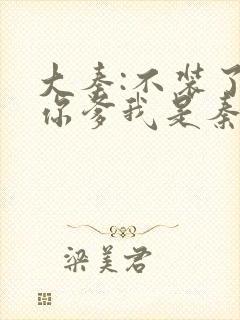 大秦:不装了
你爹我是秦
梁美君